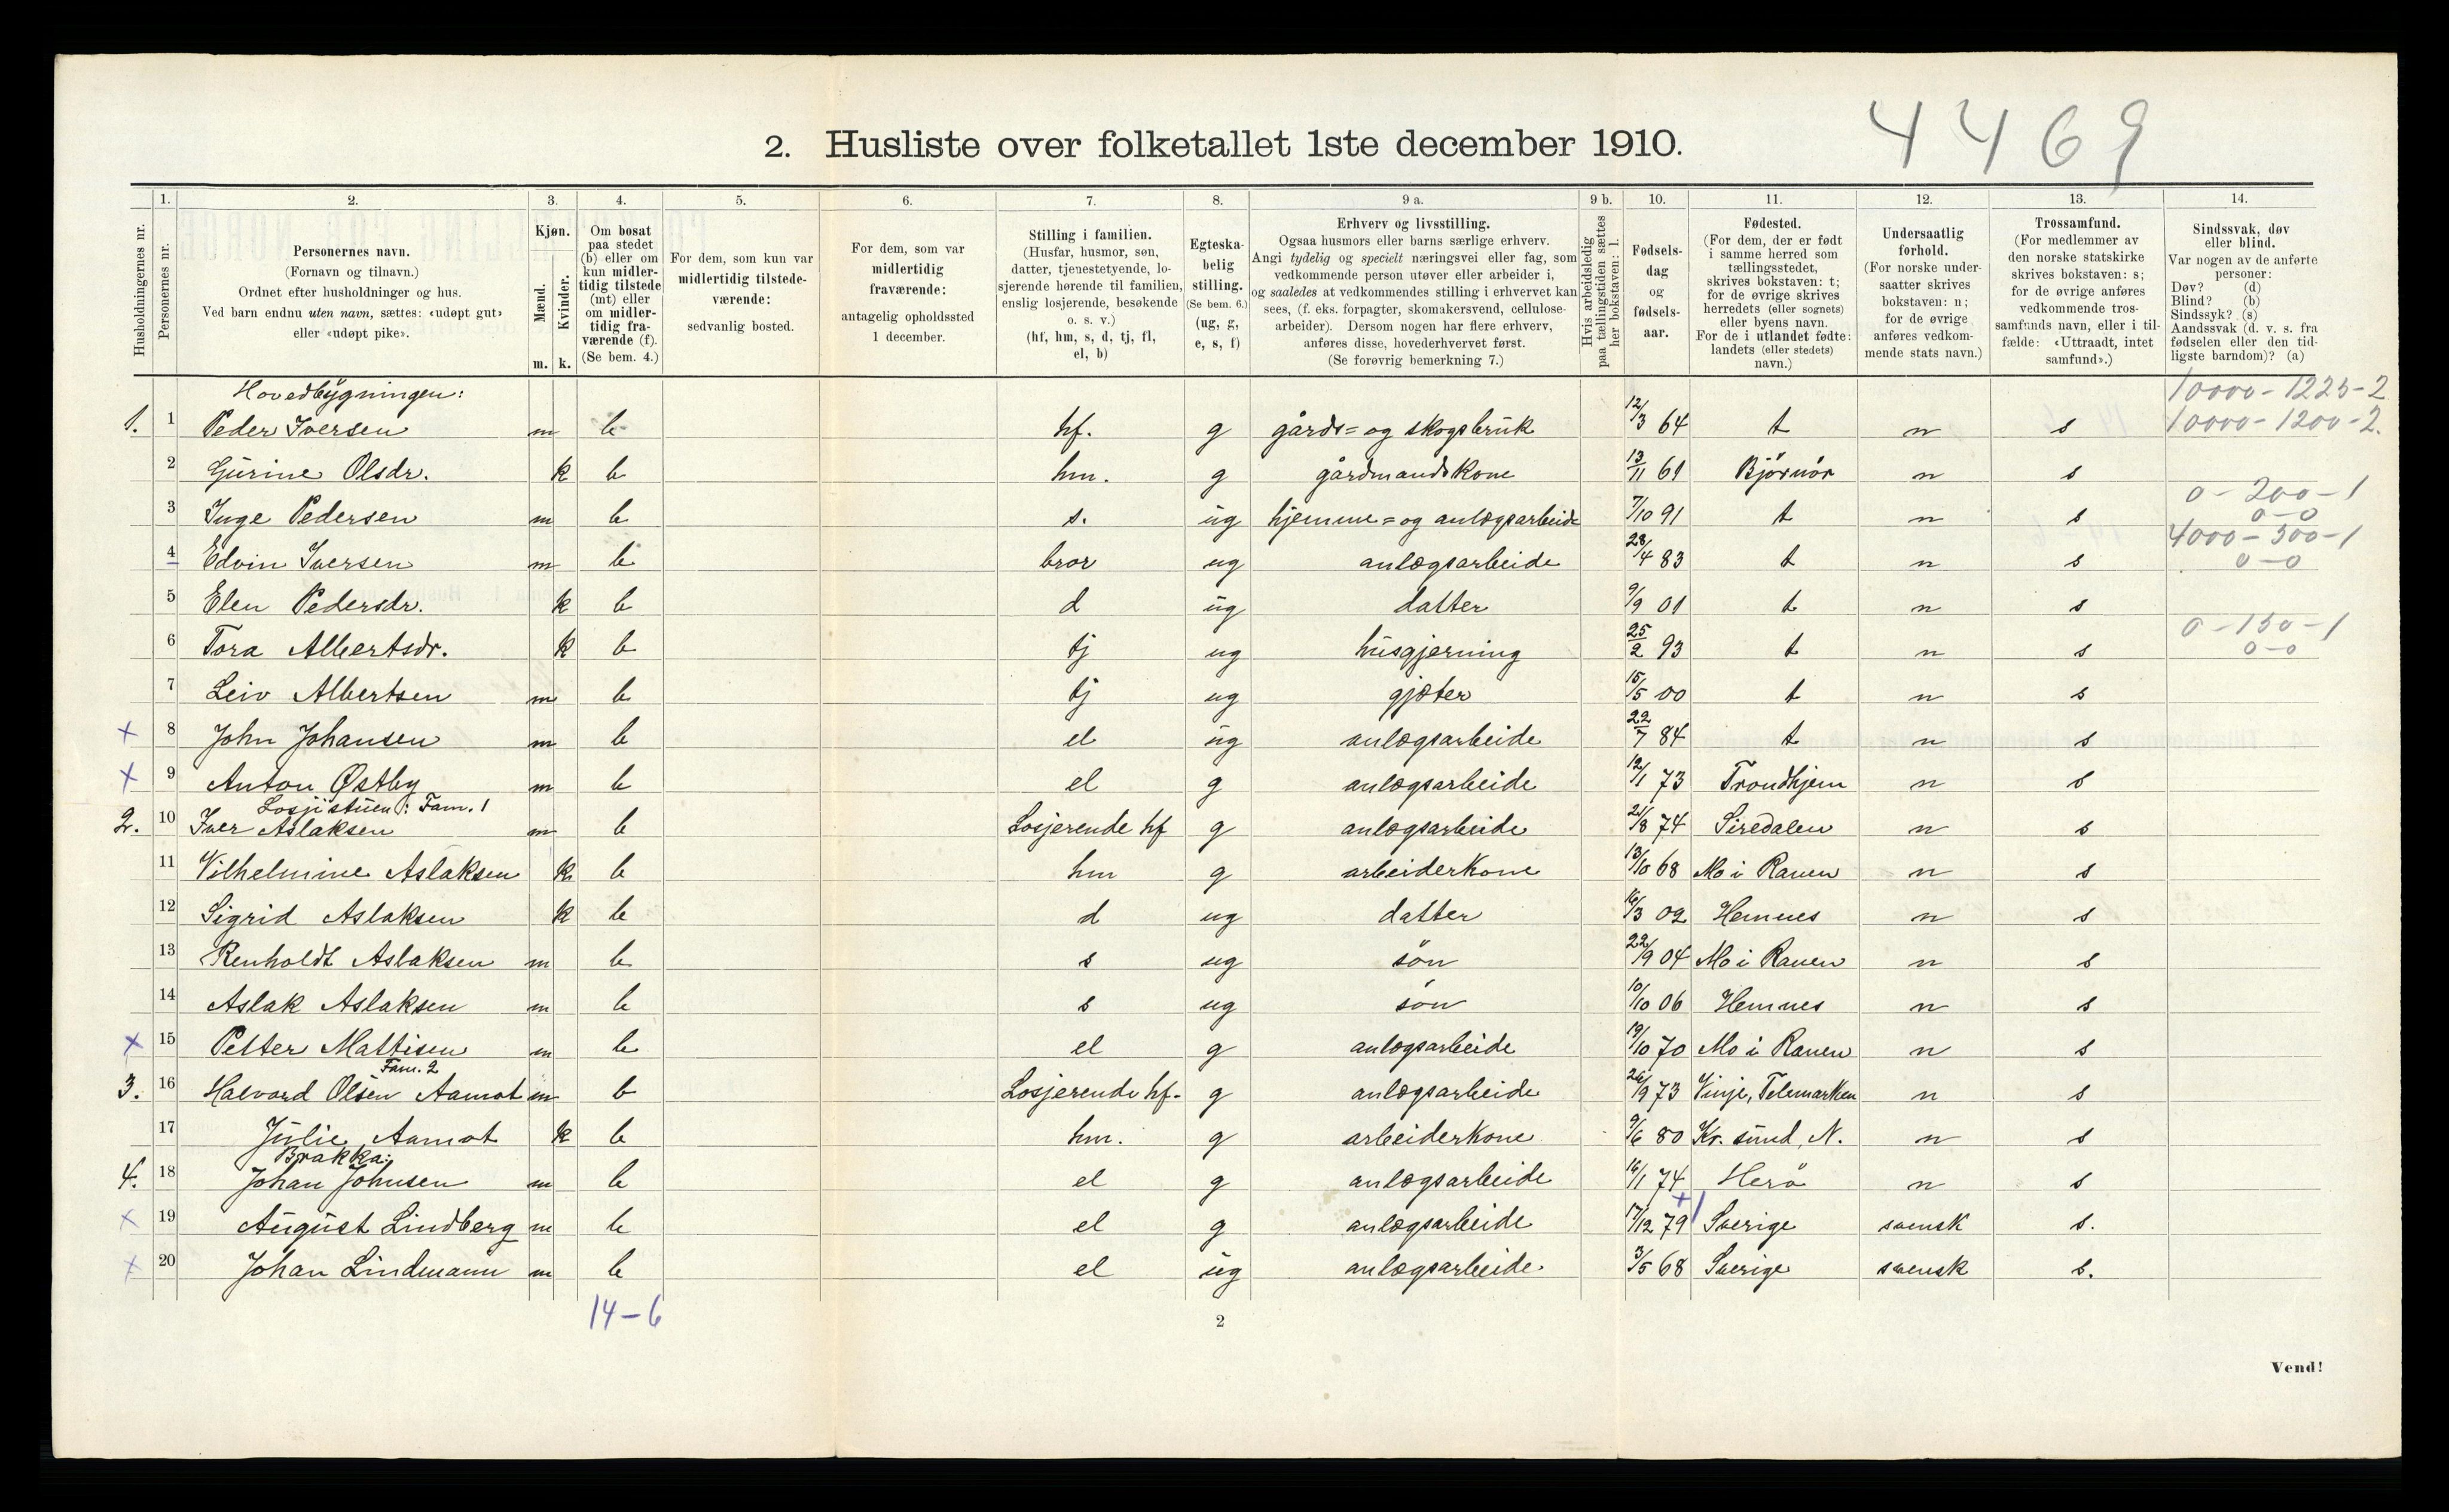 4469
2. Husliste over folketallet 1ste december 1910.
Husholdningernes nr.
1. Personernes nr.
2. Personernes navn. (Fornavn og tilnavn.) Ordnet efter husholdninger og hus. Ved barn endnu uten navn, sættes: «udøpt gut» eller «udøpt pike».
3. Kjøn. Mænd. m. Kvinder. k.
4. Om bosat paa stedet (b) eller om kun midlertidig tilstede (mt) eller om midlertidig fraværende (f). (Se bem. 4.)
5. For dem, som kun var midlertidig tilstedeværende: sedvanlig bosted.
6. For dem, som var midlertidig fraværende: antagelig opholdssted 1 december.
7. Stilling i familien. (Husfar, husmor, søn, datter, tjenestetyende, losjerende hørende til familien, enslig losjerende, besøkende o. s. v.) (hf, hm, s, d, tj, fl, el, b)
8. Egteskabelig stilling. (Se bem. 6.) (ug, g, e, s, f)
9 a. Erhverv og livsstilling. Ogsaa husmors eller barns særlige erhverv. Angi tydelig og specielt næringsvei eller fag, som vedkommende person utøver eller arbeider i, og saaledes at vedkommendes stilling i erhvervet kan sees, (f. eks. forpagter, skomakersvend, cellulosearbeider). Dersom nogen har flere erhverv, anføres disse, hovederhvervet først. (Se forøvrig bemerkning 7.)
9 b. Hvis arbeidsledig paa tællingstiden sættes her bokstaven: l.
10. Fødselsdag og fødselsaar.
11. Fødested. (For dem, der er født i samme herred som tællingsstedet, skrives bokstaven: t; for de øvrige skrives herredets (eller sognets) eller byens navn. For de i utlandet fødte: landets (eller stedets) navn.)
12. Undersaatlig forhold. (For norske undersaatter skrives bokstaven: n; for de øvrige anføres vedkommende stats navn.)
13. Trossamfund. (For medlemmer av den norske statskirke skrives bokstaven: s; for de øvrige anføres vedkommende trossamfunds navn, eller i tilfælde: «Uttraadt, intet samfund».)
14. Sindssvak, døv eller blind. Var nogen av de anførte personer: Døv? (d) Blind? (b) Sindssyk? (s) Aandssvak (d. v. s. fra fødselen eller den tidligste barndom)? (a)
Hovedbygningen: 10000 - 1225 - 2
1. 1 Peder Iversen m b hf. g gårds= og skogsbruk 12/3 64 t n s 10000 - 1200 - 2.
2 Gurine Olsdr. k b hm. g gårdmandskone 13/11 61 Bjørnör n s
0 - 200 - 1
3 Inge Pedersen m b s. ug hjemme= og anlægsarbeide 7/10 91 t n s 0 - 0
4000 - 500 - 1
4 Edvin Iversen m b bror ug anlægsarbeide 28/4 83 t n s 0 - 0
5 Elen Pedersdr. k b d ug datter 9/9 01 t n s
0 - 150 - 1
6 Tora Albertsdr. k b tj ug husgjerning 25/2 93 t n s 0 - 0
7 Leiv Albertsen m b tj ug gjæter 15/5 00 t n s
x 8 John Johansen m b el ug anlægsarbeide 22/7 84 t n s
x 9 Anton Østby m b el g anlægsarbeide 12/1 73 Trondhjem n s
Losjistuen: Fam. 1
2. 10 Iver Aslaksen m b Losjerende hf g anlægsarbeide 21/8 74 Siredalen n s
11 Vilhelmine Aslaksen k b hm g arbeiderkone 13/10 68 Mo i Ranen n s
12 Sigrid Aslaksen k b d ug datter 16/3 02 Hemnes n s
13 Renholdt Aslaksen m b s ug sön 22/9 04 Mo i Ranen n s
14 Aslak Aslaksen m b s ug sön 10/10 06 Hemnes n s
x 15 Petter Mattisen m b el g anlægsarbeide 19/10 70 Mo i Ranen n s
Fam. 2
3. 16 Halvard Olsen Aamot m b Losjerende hf. g anlægsarbeide 26/9 73 Vinje, Telemarken n s
17 Julie Aamot k b hm. g arbeiderkone 9/6 80 Kr. sund, N. n s
Brakka:
4. 18 Johan Johnsen m b el g anlægsarbeide 16/1 74 Herö n s
x 19 August Lindberg m b el g anlægsarbeide 17/12 79 Sverige svensk s.
x 20 Johan Lindmann m b el ug anlægsarbeide 3/5 68 Sverige svensk s.
14 - 6
2
Vend!